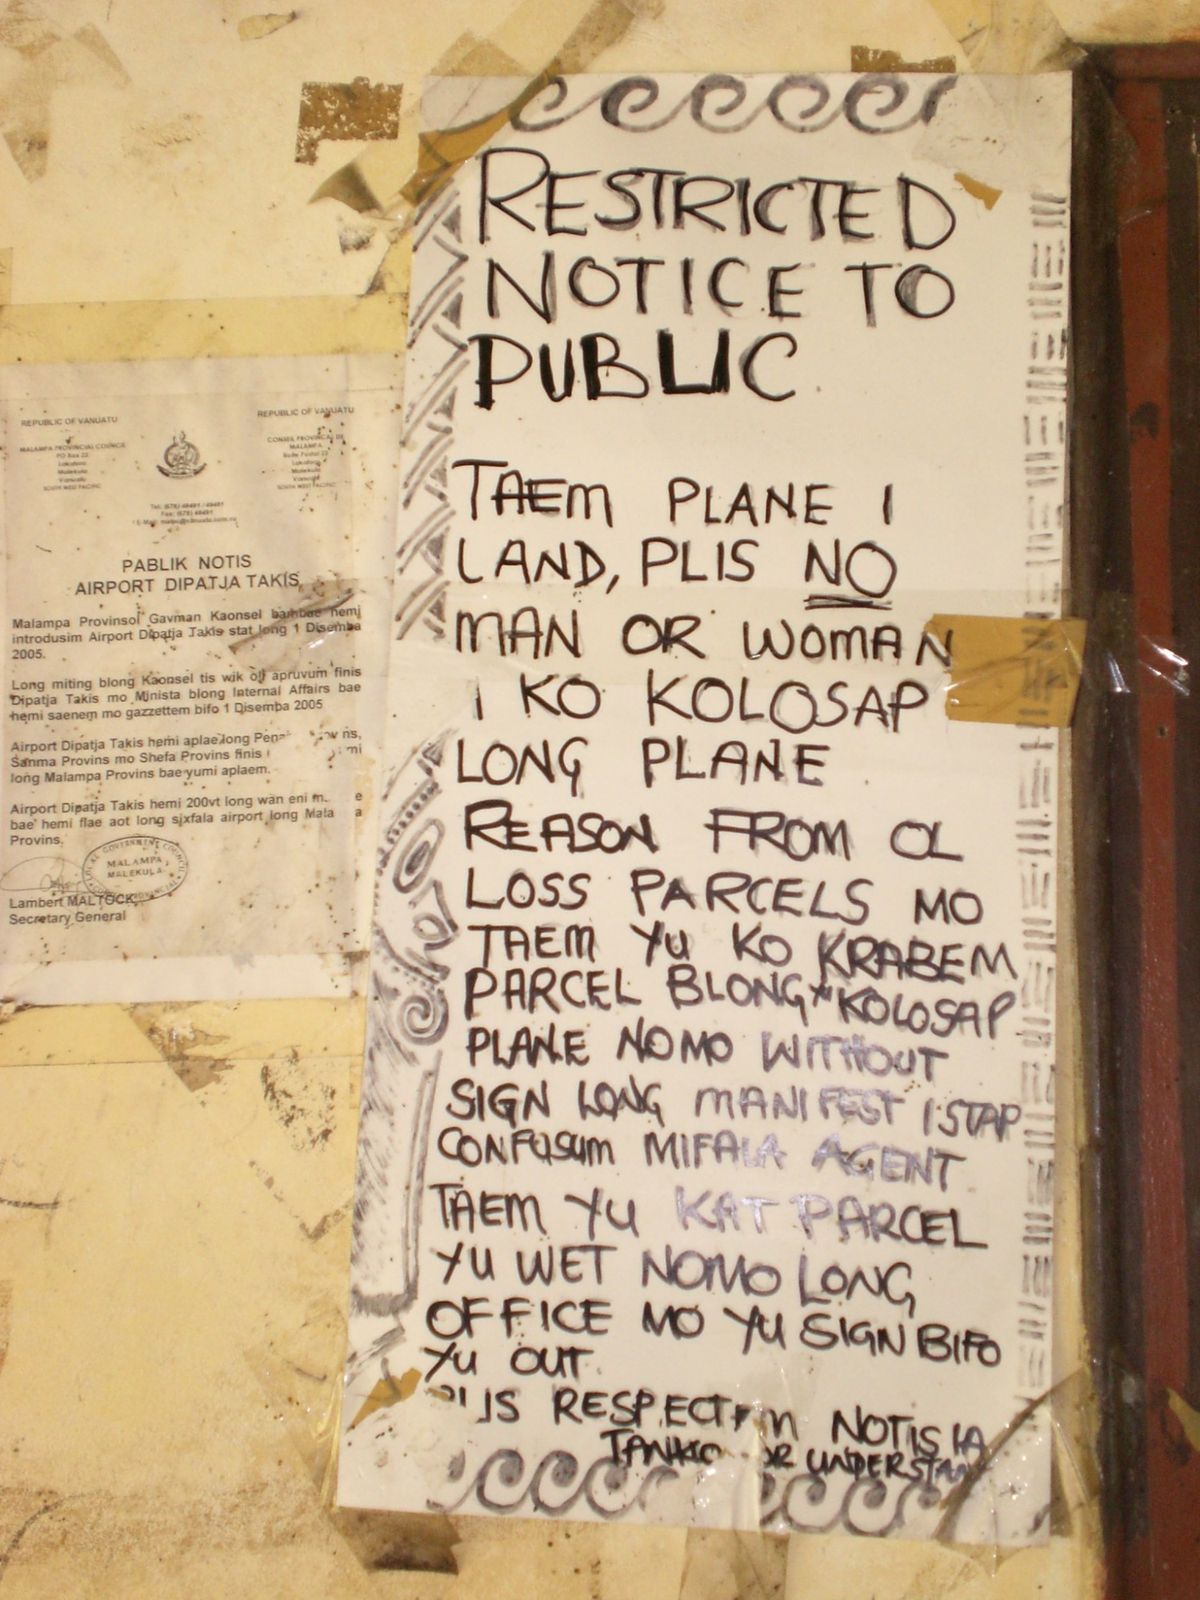 REPUBLIC OF VANUATU
MALAMPA PROVINCIAL COUNCIL
PO Box 22
Lakatoro
Malekula
Vanuatu
SOUTH WEST PACIFIC
REPUBLIC OF VANUATU
CONSEIL PROVINCIAL DE
MALAMPA
Lakatoro
SOUTH WEST PACIFIC
PABLIK NOTIS
AIRPORT DIPATJA TAKIS
Malampa Provinsol Gavman Kaonsel bambae hemi
introdusim Airport Dipatja Takis stat long 1 Disemba
2005.
Long miting blong Kaonsel tis wik oli apruvum finis
Dipatja Takis mo Minista blong Internal Affairs bae
hemi saenem mo gazzettem bifo 1 Disemba 2005
Airport Dipatja Takis hemi aplae long
Sanma Provins mo Shefa Provins finis
long Malampa Provins bae yumi aplaem.
Airport Dipatja Takis hemi 200vt long wan eni
bae hemi flae aot long sixfala airport long
Provins.
MALAMPA
MALEKULA
Lambert MALTOCK
Secretary General
RESTRICTED
NOTICE TO
PUBLIC
TAEM PLANE I
LAND, PLIS NO
MAN OR WOMAN
I KO KOLOSAP
LONG PLANE
REASON FROM OL
LOSS PARCELS MO
TAEM YU KO KRABEM
PARCEL BLONG YU KOLOSAP
PLANE NOMO WITHOUT
SIGN LONG MANIFEST I STAP
CONFUSUM MIFALA AGENT
TAEM YU KAT PARCEL
YU WET NOMO LONG
OFFICE MO YU SIGN BIFO
YU OUT
PLIS RESPECTEM NOTIS IA
UNDERSTAND